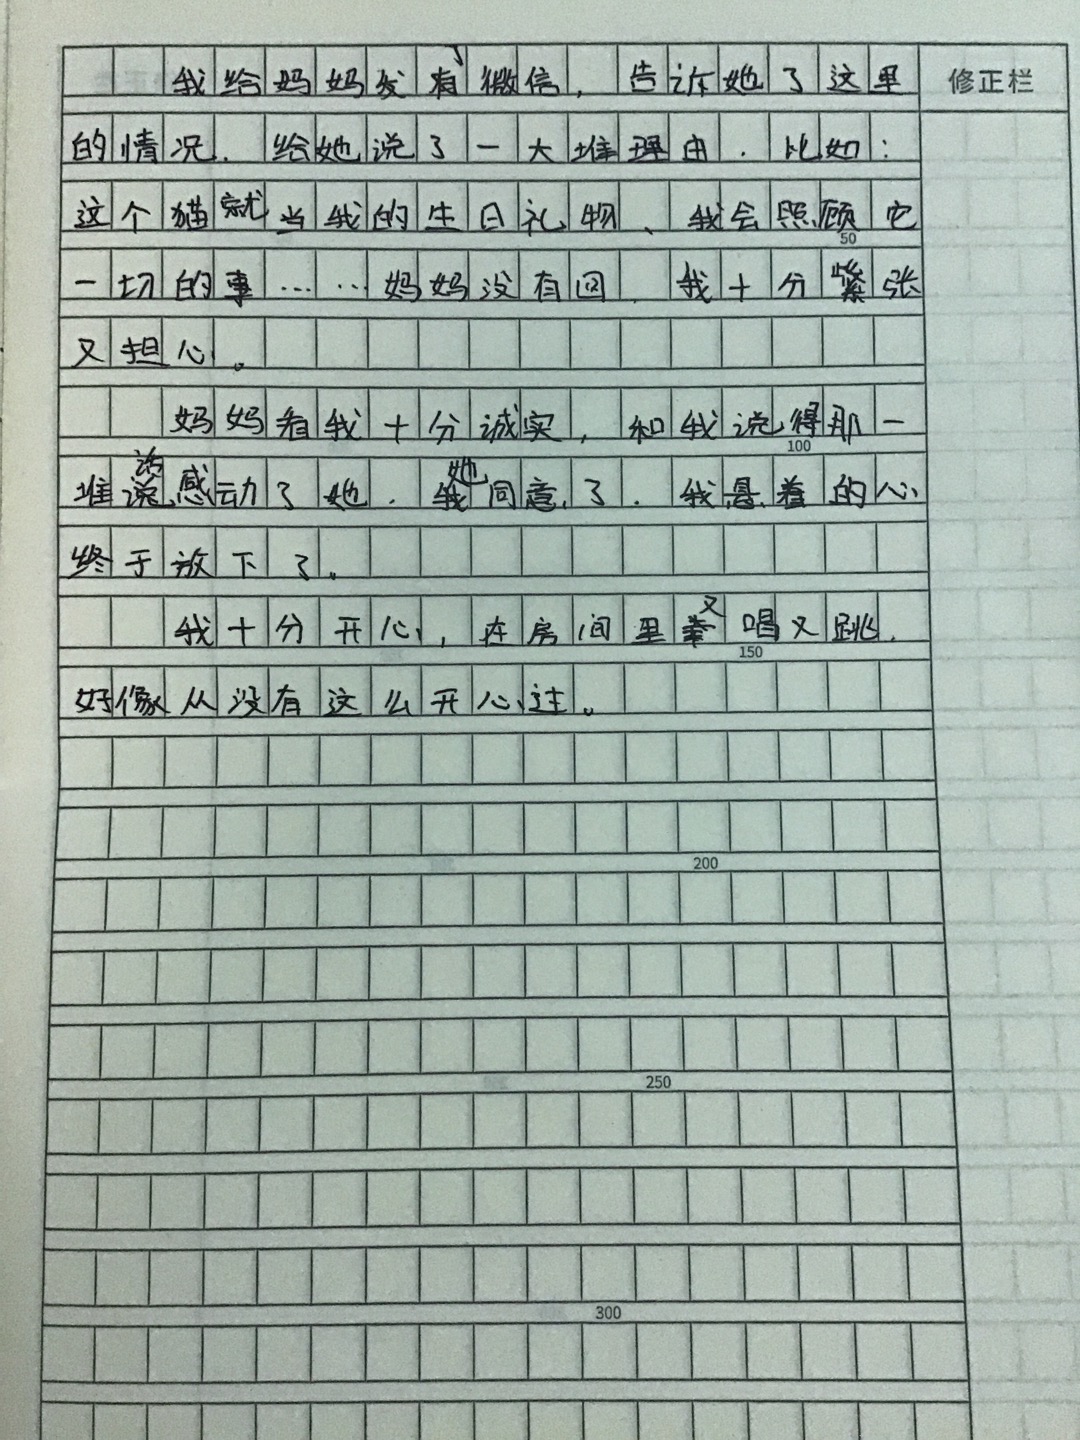 我给妈妈发了微信，告诉她了这里
修正栏
的情况.给她说了一大堆理由.比如:
这个猫就当我的生日礼物、我会照顾它
50
一切的事……妈妈没有回.我十分紧张
又担心。
妈妈看我十分诚实，和我说得那一
100
堆话感动了她.她同意了.我悬着的心
终于放下了。
我十分开心，在房间里又唱又跳.
150
好像从没有这么开心过。
200
250
300